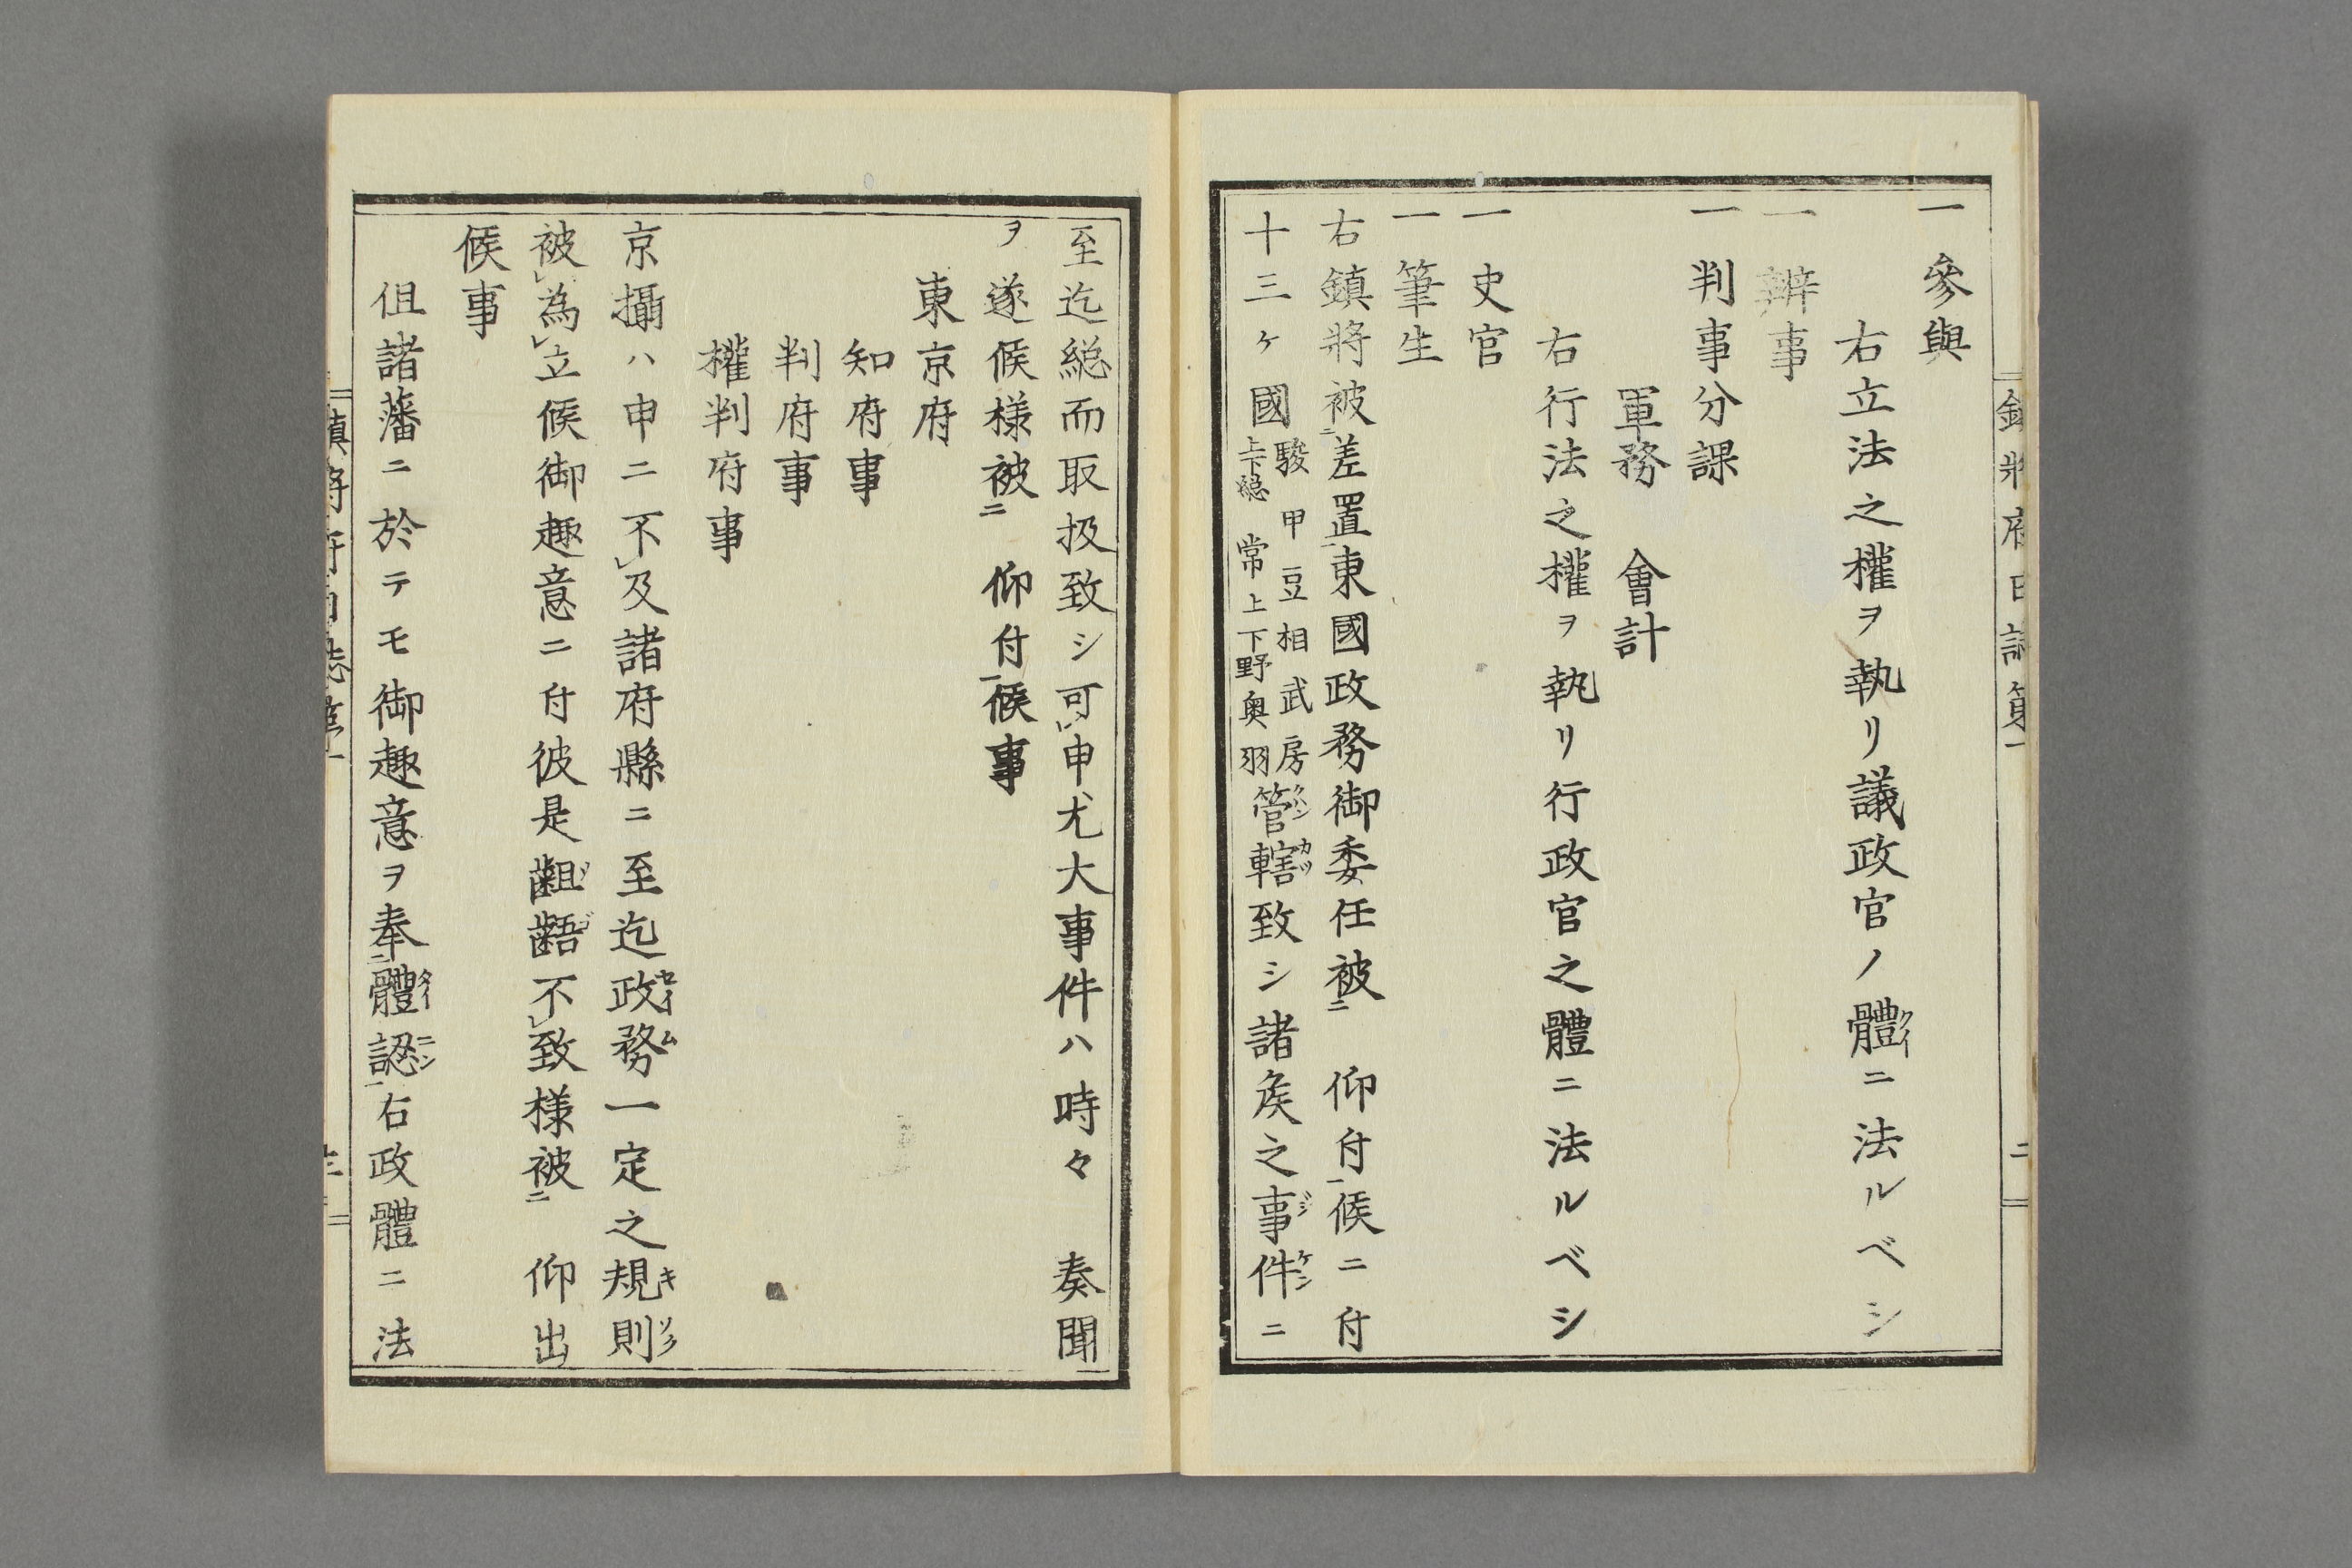 鎮將府日誌第一
二
一參與
右立法之權ヲ執リ議政官ノ體タイニ法ルベシ
一辨事
一判事分課
軍務 會計
右行法之權ヲ執リ行政官之體ニ法ルベシ
一史官
一筆生
右鎮將被二差置一東國政務御委任被二 仰付一候ニ付
十三ヶ國駿甲豆相武房上下總常上下野奥羽管クワン轄カツ致シ諸矦之事ジ件ケンニ
至迄縂而取扱致シ可レ申尤大事件ハ時々 奏聞
ヲ遂候様被二 仰付一候事
東京府
知府事
判府事
權判府事
京攝ハ申ニ不レ及諸府縣ニ至迄政セイ務ム一定之規キ則ソク
被レ為レ立候御趣意ニ付彼是齟ソ齬ゴ不レ致様被二 仰出
候事
伹諸藩ニ於テモ御趣意ヲ奉二體タイ認ニン一右政體ニ法
鎮將府日誌第一
三